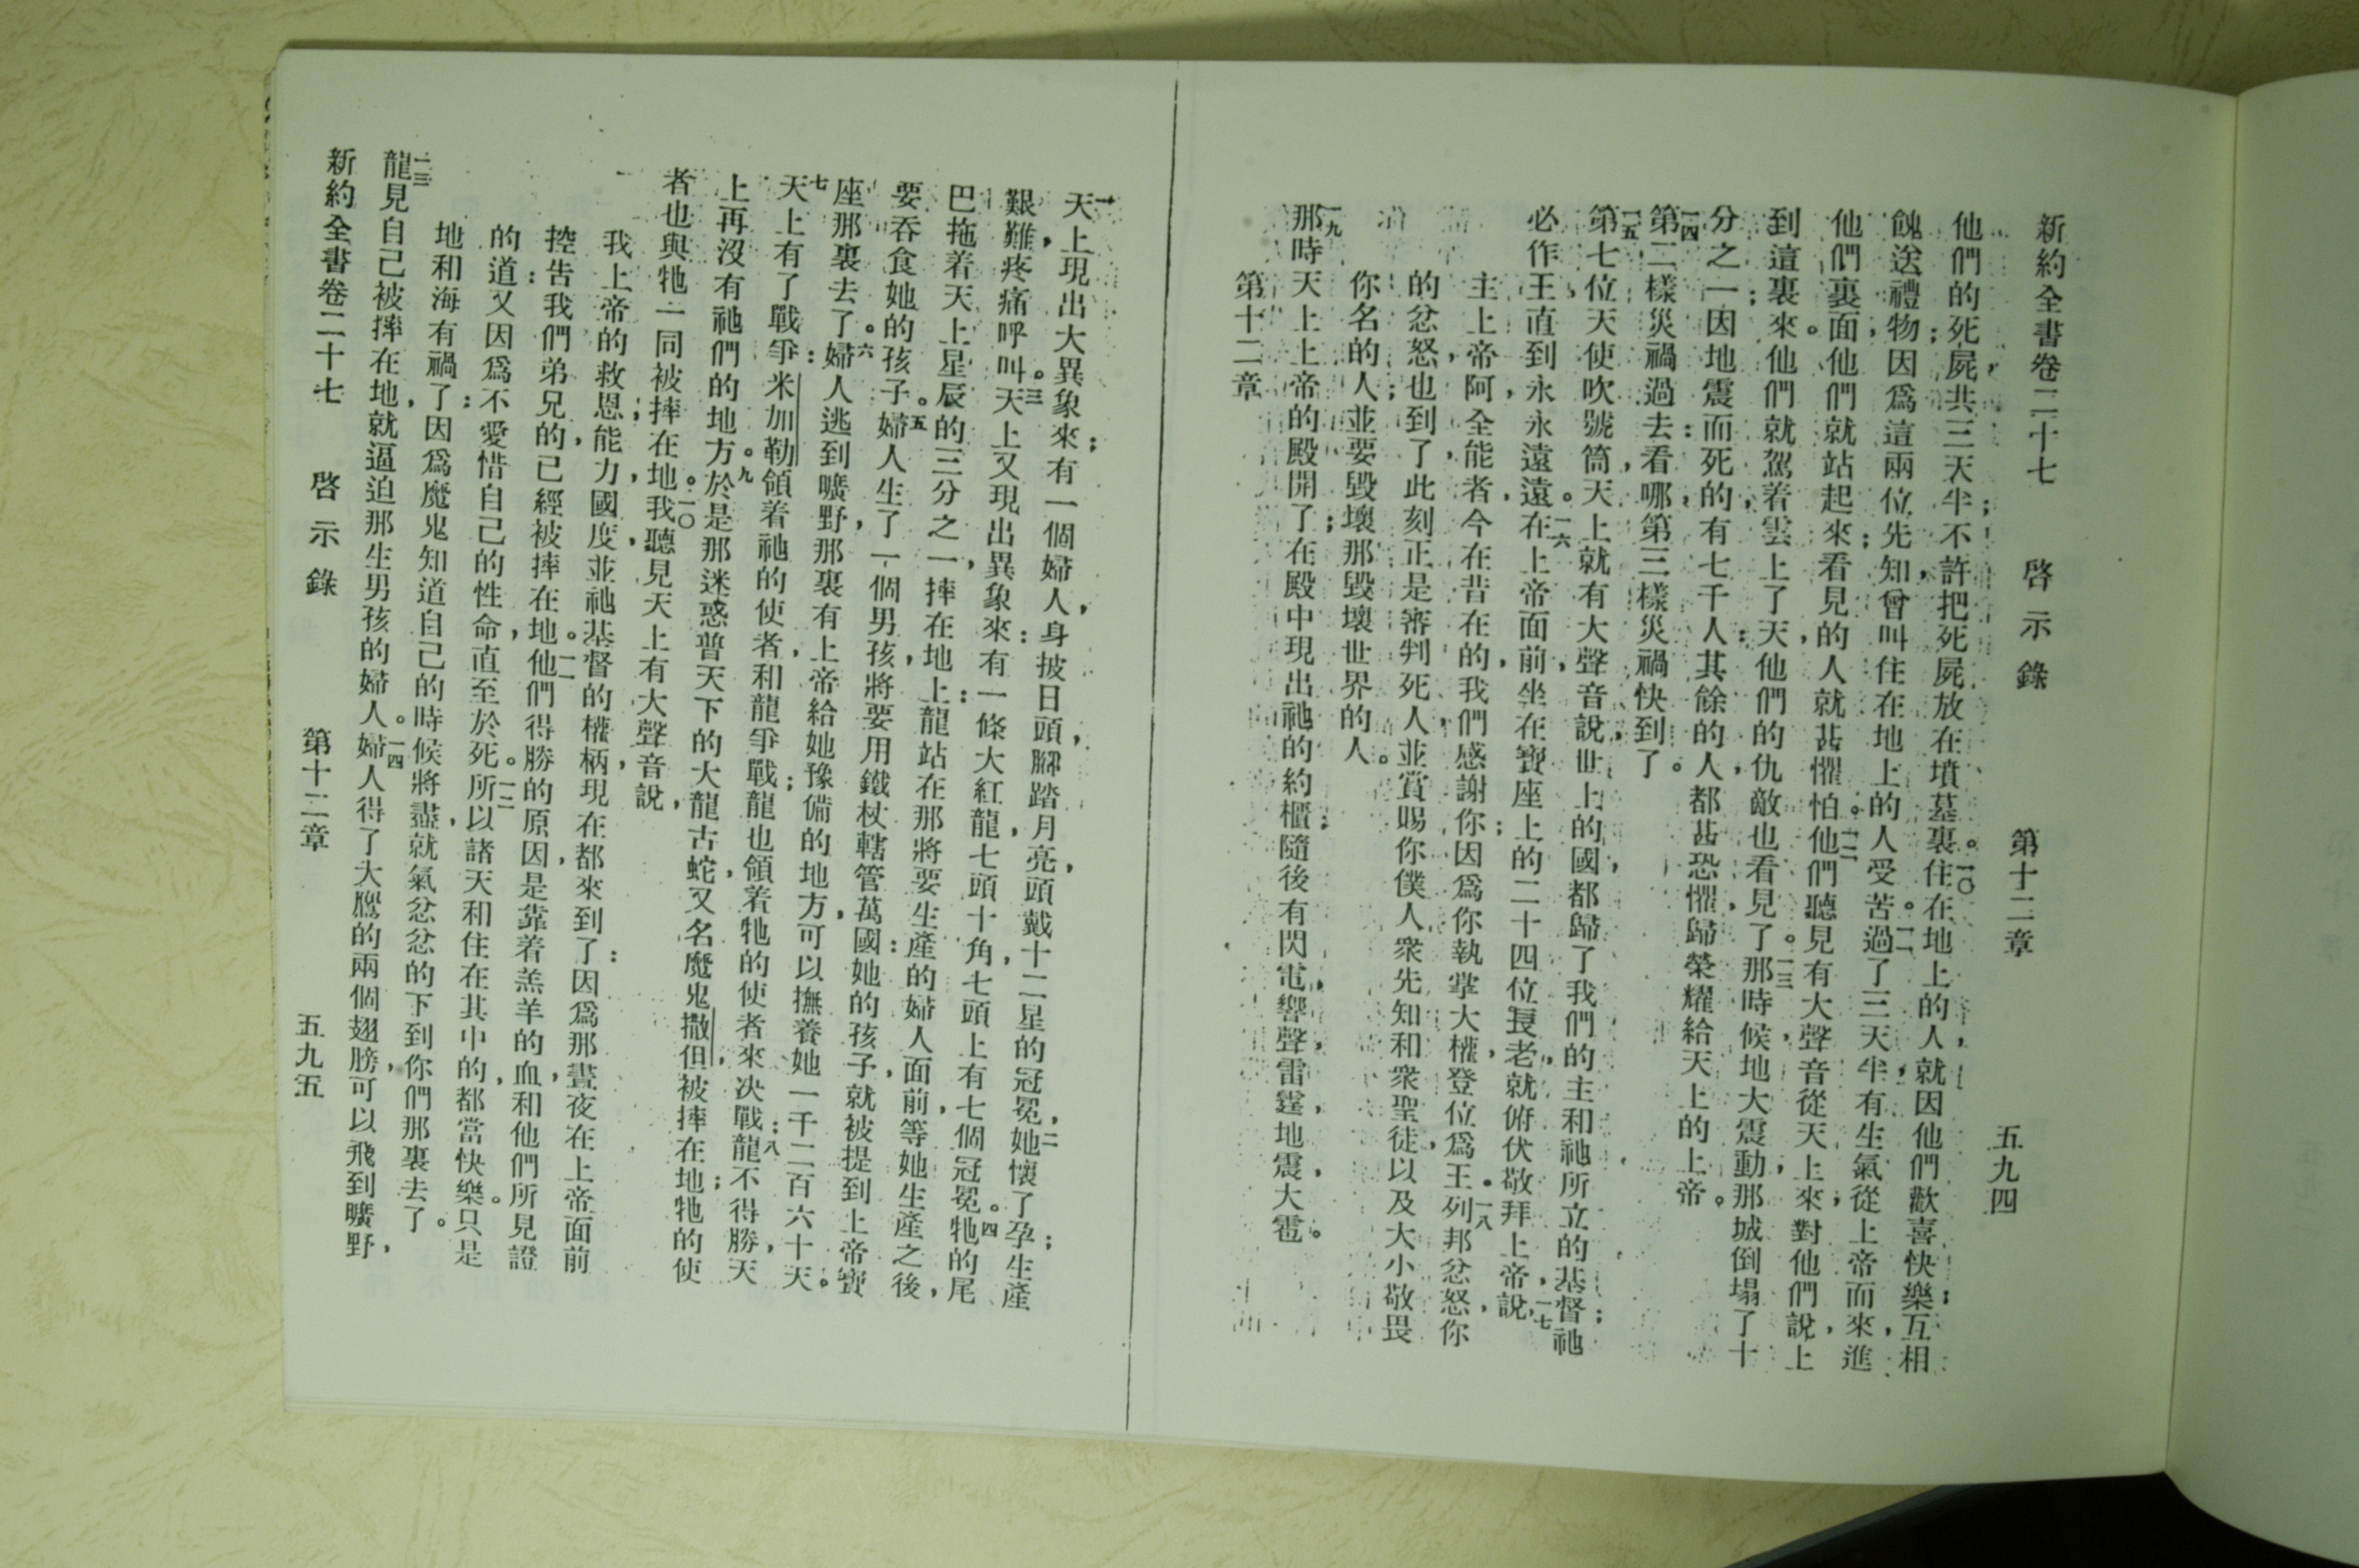 新約全書卷二十七　啓示錄　第十二章　五九四
他們的死屍共三天半；不許把死屍放在墳墓裏。一〇住在地上的人，就因他們歡喜快樂；互相
餽送禮物；因爲這兩位先知，曾叫住在地上的人受苦。一一過了三天半，有生氣從上帝而來，進
他們裏面，他們就站起來；看見的人就甚懼怕。一二他們聽見有大聲音從天上來，對他們說，上
到這裏來。他們就駕着雲上了天，他們的仇敵也看見了。一三那時候，地大震動，那城倒塌了十
分之一；因地震而死的，有七千人：其餘的人，都甚恐懼，歸榮耀給天上的上帝。
一四第二樣災禍過去：看哪，第三樣災禍快到了。
一五第七位天使吹號筒，天上就有大聲音說，世上的國，都歸了我們的主和祂所立的基督；祂
必作王，直到永永遠遠。一六在上帝面前，坐在寶座上的二十四位長老，就俯伏敬拜上帝，說，一七
主上帝阿，全能者，今在昔在的，我們感謝你；因爲你執掌大權，登位爲王。一八列邦忿怒，你
的忿怒也到了，此刻正是審判死人，並賞賜你僕人衆先知，和衆聖徒，以及大小敬畏
你名的人；並要毀壞那毀壞世界的人。
一九那時天上上帝的殿開了；在殿中現出祂的約櫃；隨後有閃電，響聲，雷霆，地震，大雹。
第十二章
一天上現出大異象來；有一個婦人，身披日頭，腳踏月亮，頭戴十二星的冠冕，二她懷了孕；生產
艱難，疼痛呼叫。三天上又現出異象來：有一條大紅龍，七頭十角，七頭上有七個冠冕。四牠的尾
巴拖着天上星辰的三分之一，摔在地上：龍站在那將要生產的婦人面前，等她生產之後，
要吞食她的孩子。五婦人生了一個男孩，將要用鐵杖轄管萬國：她的孩子，就被提到上帝寶
座那裏去了。六婦人逃到曠野，那裏有上帝給她豫備的地方，可以撫養她一千二百六十天。
七天上有了戰爭：米加勒領着祂的使者，和龍爭戰；龍也領着牠的使者來決戰：八龍不得勝，天
上再沒有祂們的地方。九於是那迷惑普天下的大龍古蛇，又名魔鬼撒但，被摔在地；牠的使
者也與牠一同被摔在地。一〇我聽見天上有大聲音說，
我上帝的救恩，能力，國度，並祂基督的權柄，現在都來到了：因爲那晝夜在上帝面前
控告我們弟兄的，已經被摔在地。一一他們得勝的原因，是靠着羔羊的血，和他們所見證
的道：又因爲不愛惜自己的性命，直至於死。一二所以諸天和住在其中的，都當快樂。只是
地和海有禍了：因爲魔鬼知道自己的時候將盡，就氣忿忿的下到你們那裏去了。
一三龍見自己被摔在地，就逼迫那生男孩的婦人。一四婦人得了大鷹的兩個翅膀，可以飛到曠野，
新約全書卷二十七　啓示錄　第十二章　五九五